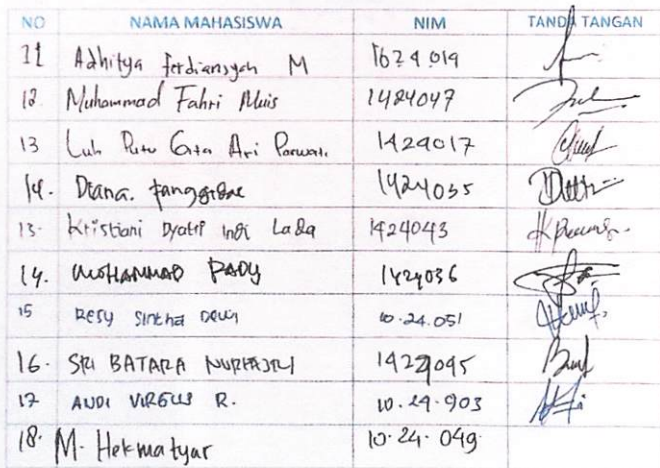 NO NAMA MAHASISWA NIM TANDA TANGAN
11 Adhitya Ferdiansyah M 1624019
12. Muhammad Fahri Muis 1424047
13 Luh Putu Gita Ari Parwati 1424017
14. Diana. 1424035
13. Kristiani Dyatri Indi Lada 1424043
14. MUHAMMAD PADY 1424036
15 RESY Sintha Dewi 10.24.051
16. SRI BATARA NURFAJRI 1424045
17 ANDI R. 10.24.903
18. M. Hekmatyar 10.24.049